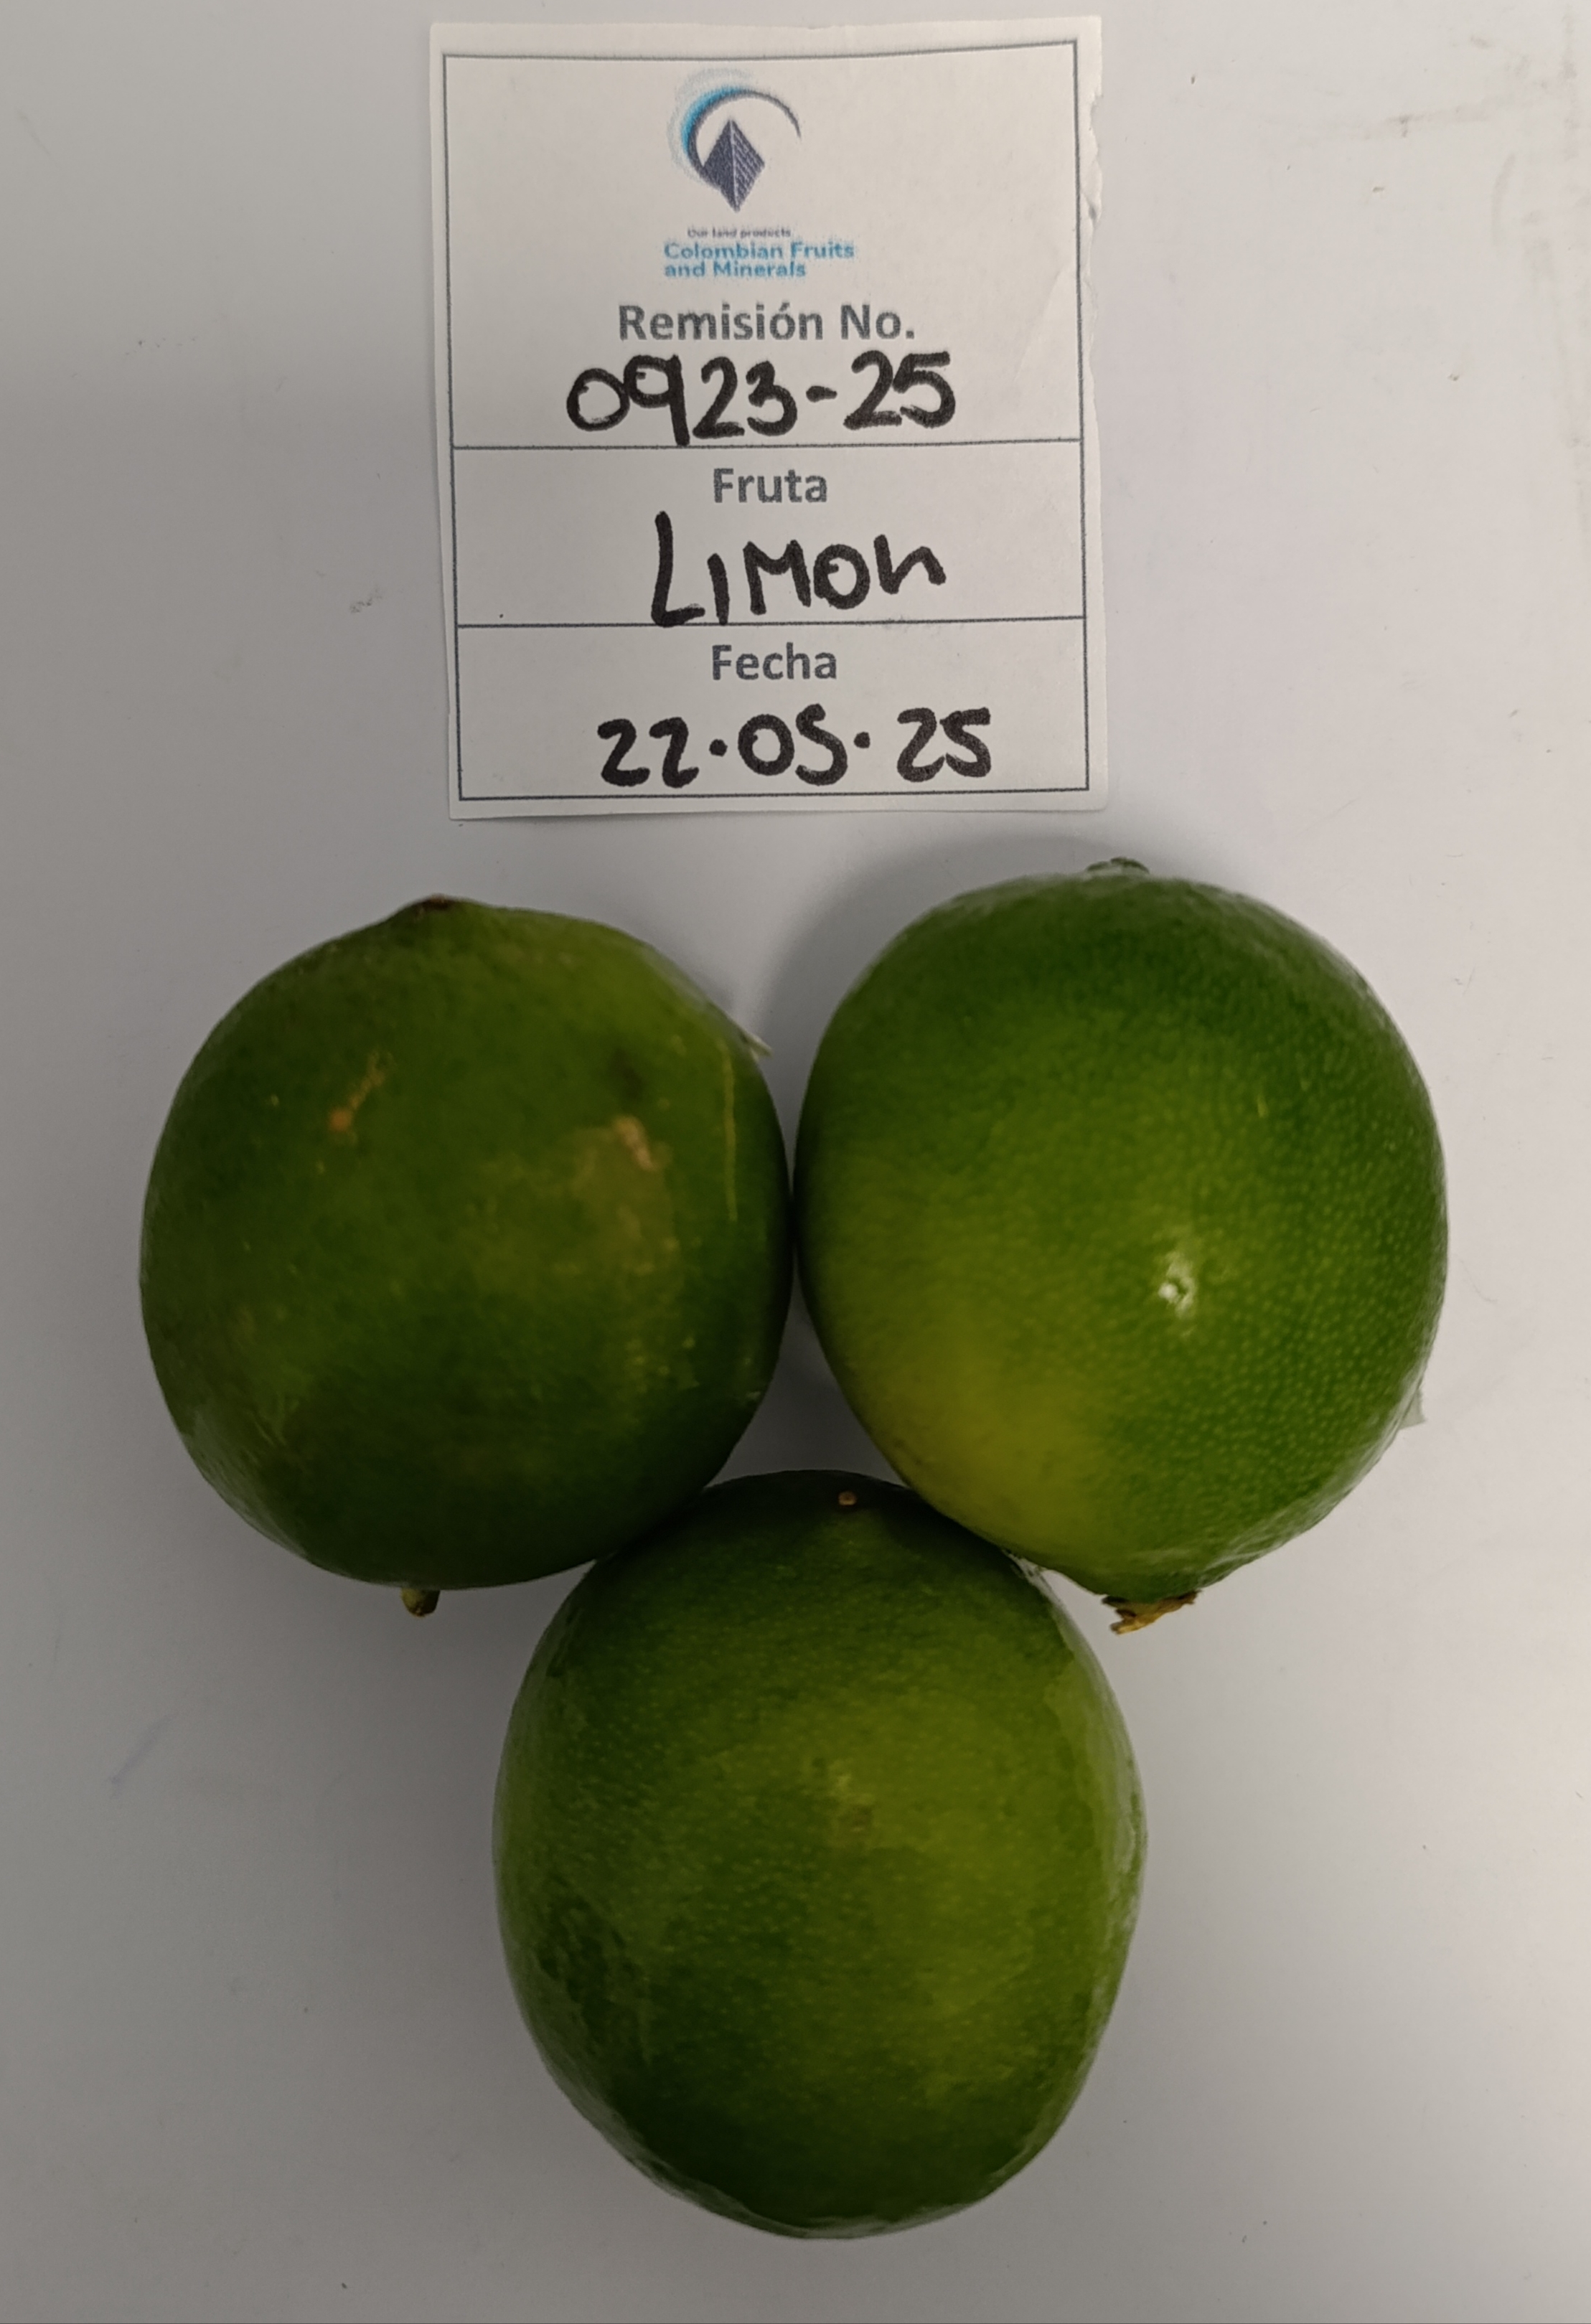 Our land products
Colombian Fruits
and Minerals
Remisión No.
0923-25
Fruta
LIMON
Fecha
22.05.25